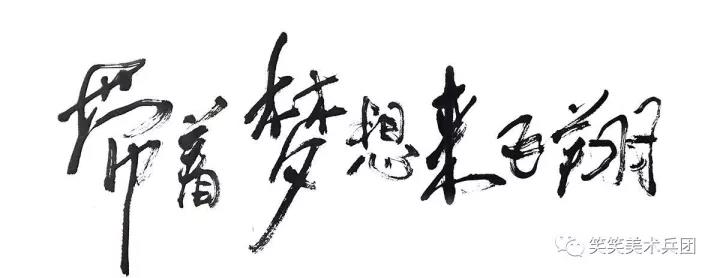 带着梦想来飞翔
笑笑美术兵团